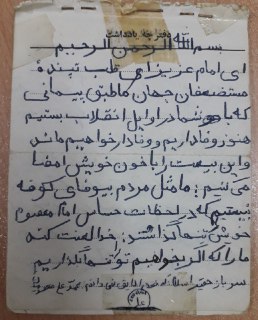 دفترچه یادداشت
بسم الله الرحمن الرحیم
ای امام عزیز ای قلب تپندهٔ
مستضعفان جهان ما طبق پیمانی
که با شما در اوایل انقلاب بستیم
هنوز وفاداریم و وفادار خواهیم ماند
و این بیعت را با خون خویش امضا
می کنیم؛ ما مثل مردم بیوفای کوفه
نیستیم که در لحظات حساس امام معصوم
خویش تنها گذاشتند؛ خدا لعنت کند
ما را که اگر بخواهیم تو تنها بگذاریم
سرباز